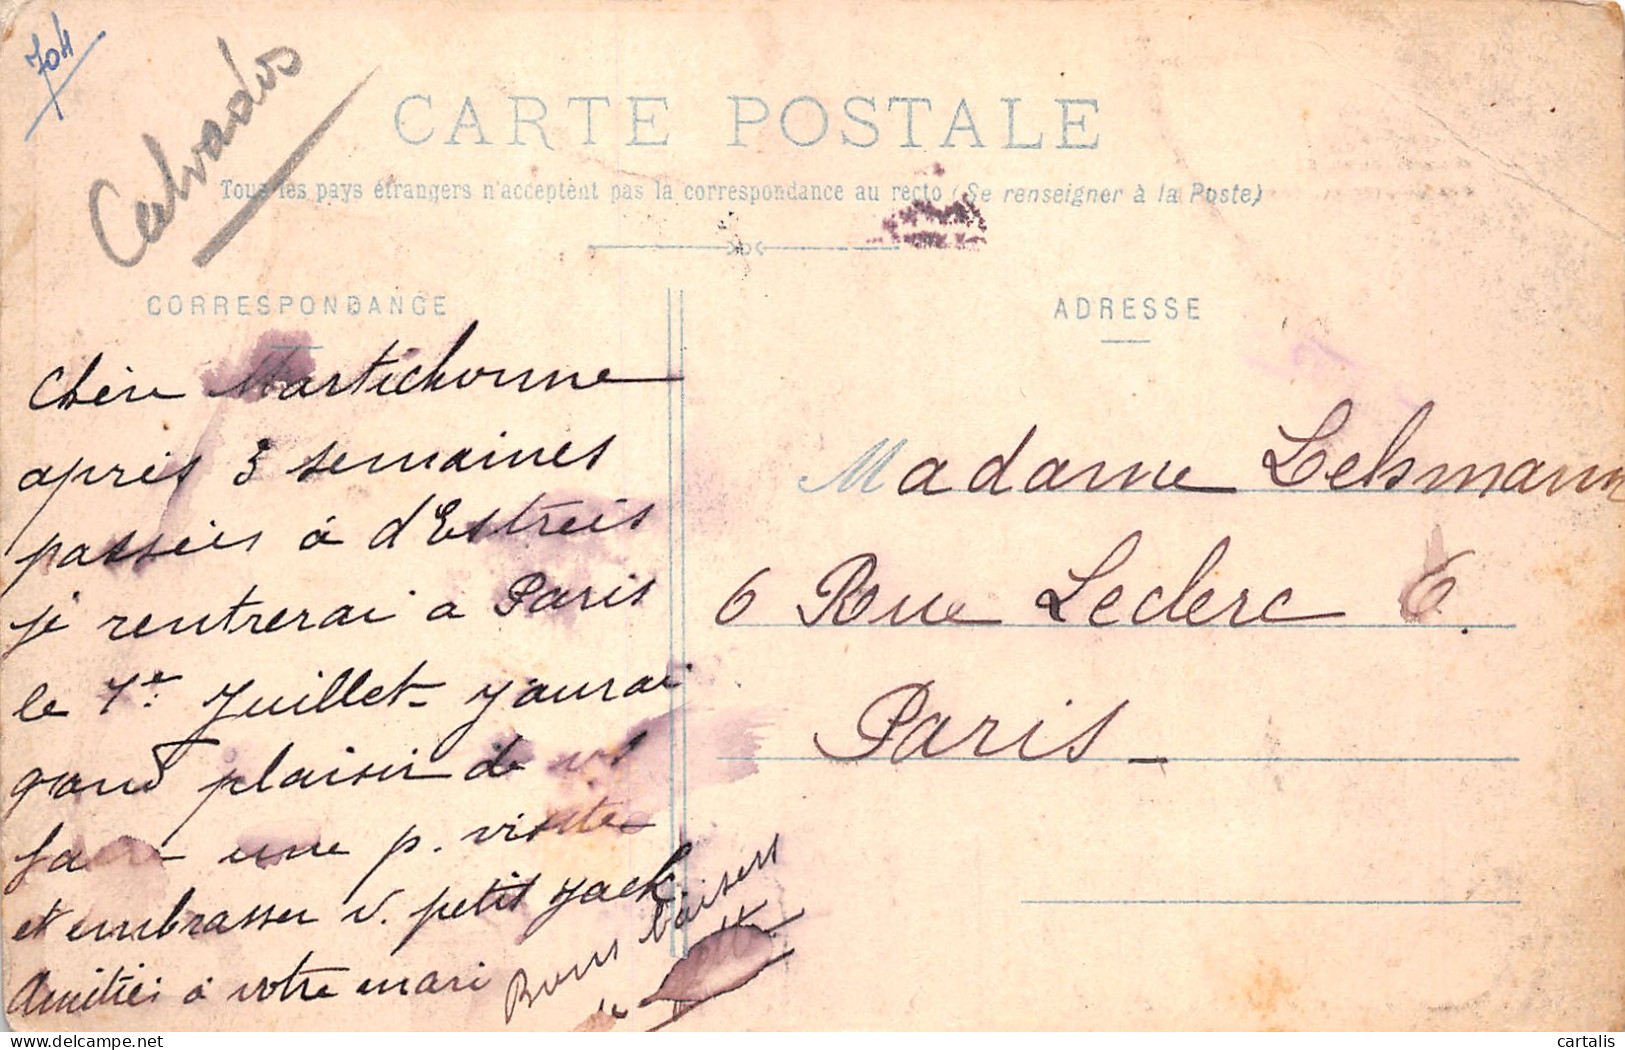 704
Calvados
CARTE POSTALE
Tous les pays étrangers n'acceptent pas la correspondance au recto (Se renseigner à la Poste)
CORRESPONDANCE
Chère Martichonne
après 3 semaines
passées à d'Estreés
je rentrerai a Paris
le 1er Juillet - j'aurai
grand plaisir de
faire une p. visite
et embrasser v. petit Jack
Amitiés à votre mari
Bons baisers
ADRESSE
Madame Lehmann
6 Rue Leclerc 6.
Paris -
cartalis